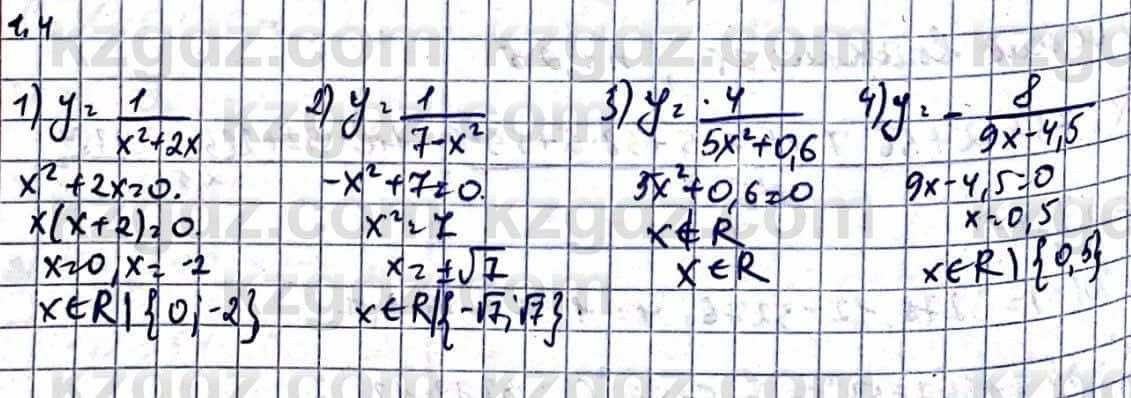 1,4
1) y = 1/(x²+2x)
x²+2x=0.
x(x+2)=0.
x=0, x=-2
x∈R\{0;-2}
2) y = 1/(7-x²)
-x²+7=0.
x²=7
x=±√7
x∈R\{-√7;√7}.
3) y = 4/(5x²+0,6)
5x²+0,6=0
x∉R
x∈R
4) y = -8/(9x-4,5)
9x-4,5=0
x=0,5
x∈R\{0,5}
kzgdz.com kzgdz.com kzgdz.com